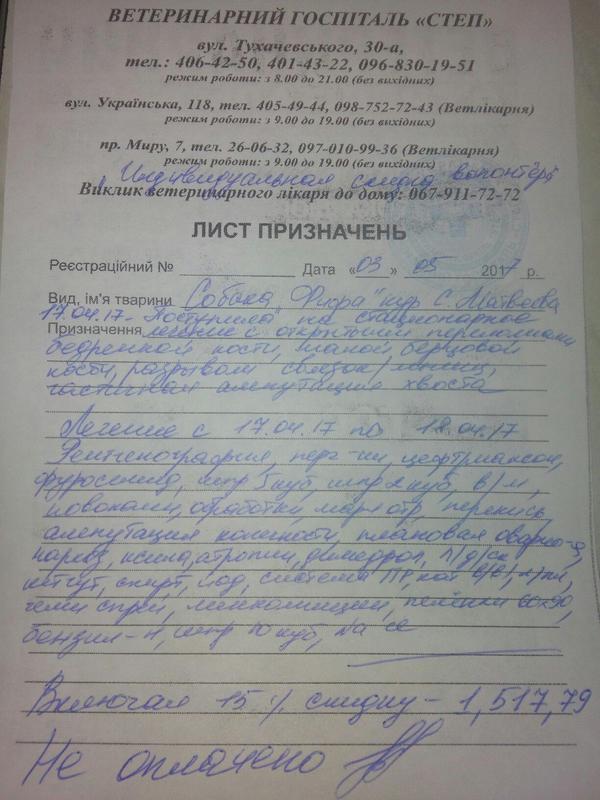 ВЕТЕРИНАРНИЙ ГОСПІТАЛЬ «СТЕП»
вул. Тухачевського, 30-а,
тел.: 406-42-50, 401-43-22, 096-830-19-51
режим роботи: з 8.00 до 21.00 (без вихідних)
вул. Українська, 118, тел. 405-49-44, 098-752-72-43 (Ветлікарня)
режим роботи: з 9.00 до 19.00 (без вихідних)
пр. Миру, 7, тел. 26-06-32, 097-010-99-36 (Ветлікарня)
режим роботи: з 9.00 до 19.00 (без вихідних)
Индивидуальная скидка
Виклик ветеринарного лікаря до дому: 067-911-72-72
ЛИСТ ПРИЗНАЧЕНЬ
Реєстраційний № Дата «03» 05 2017 р.
Вид, ім'я тварини Собака кур С. Матвеева
17.04.17 - Поступила на стационарное
Призначення лечение с открытыми переломами
бедренной кости, малой берцовой
кости, разрывом связок,
частичная ампутация хвоста
Лечение с 17.04.17 по 18.04.17
Рентгенография, цефтриаксон,
фуросемид, шпр 5 куб, шпр 2 куб, в/м,
новокаин, обработки, марл отр, перекись,
ампутация конечности, плановая
наркоз, ксила, атропин, димедрол,
кетгут, спирт, йод, система ПР, кат в/в,
чеми спрей, линкомицин, пелёнки 60х90,
шпр 10 куб, Na
Включая 15 % скидку - 1,517,79
Не оплачено